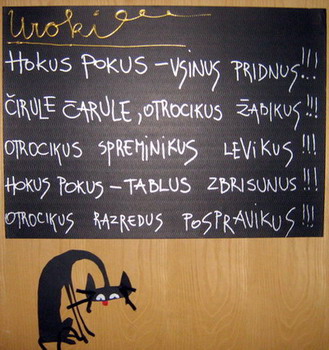 Uroki
HOKUS POKUS – VSINUS PRIDNUS!!!
ČIRULE ČARULE, OTROCIKUS ŽABIKUS!!!
OTROCIKUS SPREMINIKUS LEVIKUS !!!
HOKUS POKUS – TABLUS ZBRISUNUS !!!
OTROCIKUS RAZREDUS POSPRAVIKUS!!!